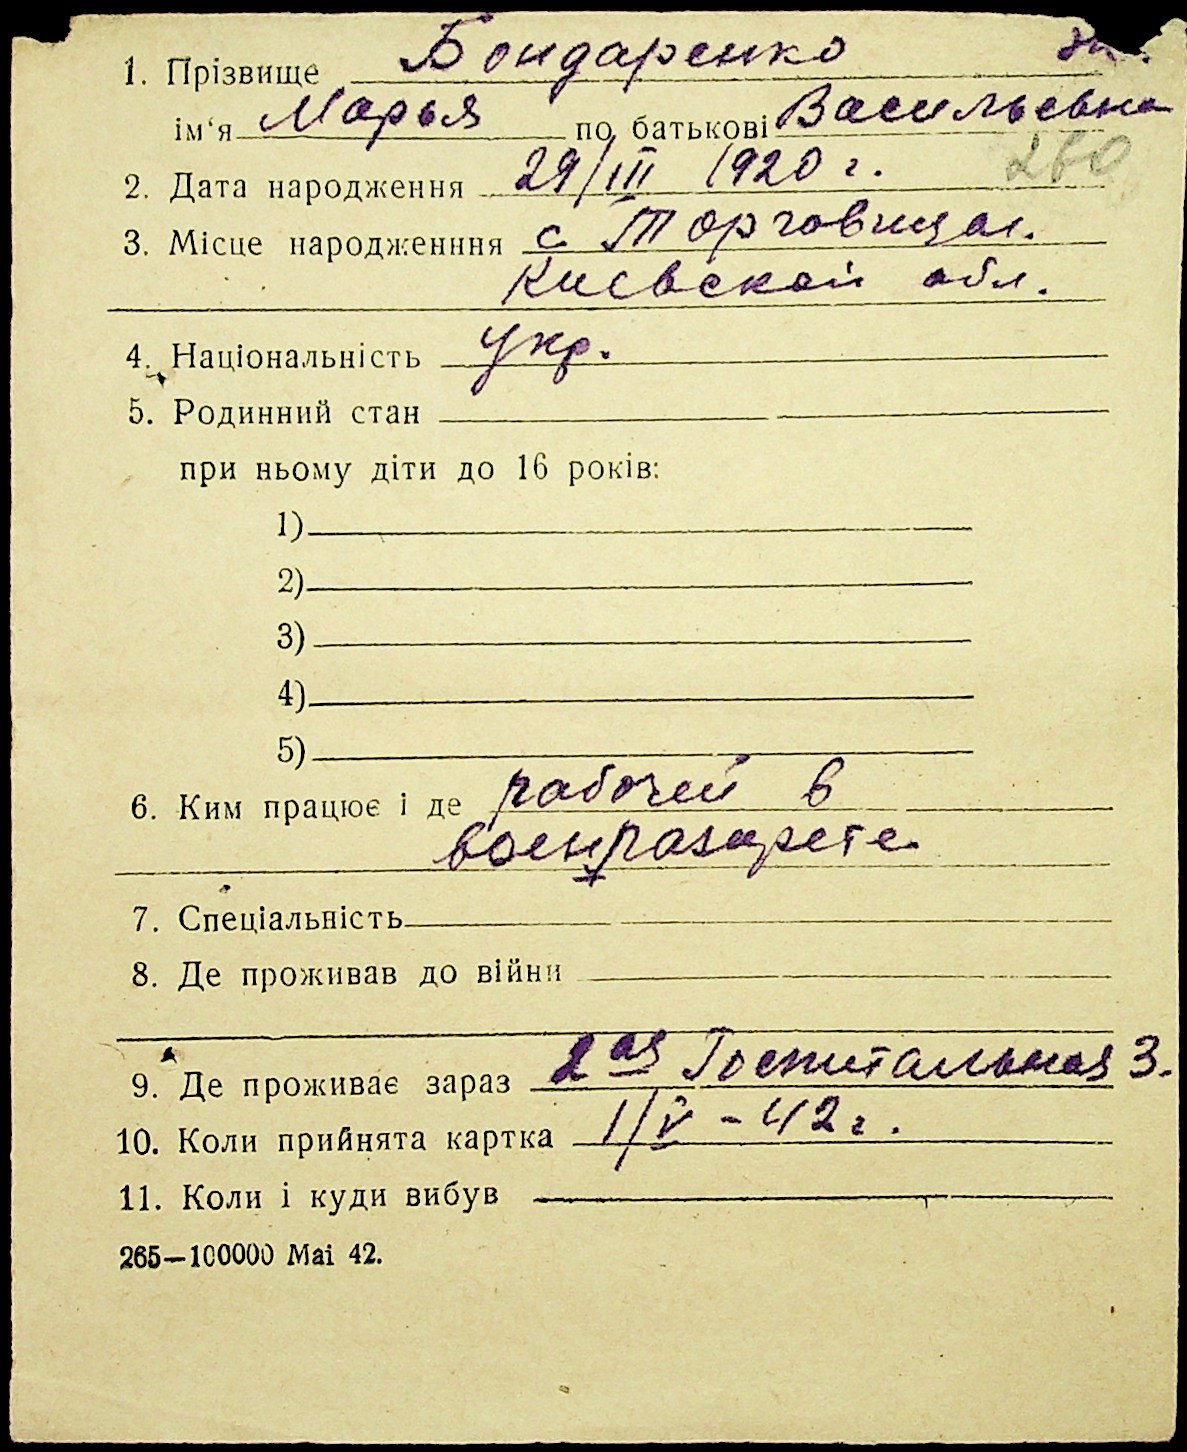 1. Прізвище Бондаренко
ім'я Марья по батькові Васильевна
2. Дата народження 29/III 1920 г. 260
3. Місце народженння с Торговица
Киевской обл.
4. Національність Укр.
5. Родинний стан
при ньому діти до 16 років:
1)
2)
3)
4)
5)
6. Ким працює і де рабочей в
военлазарете.
7. Спеціальність
8. Де проживав до війни
9. Де проживає зараз 2ая Госпитальная 3.
10. Коли прийнята картка 1/V - 42 г.
11. Коли і куди вибув
265—100000 Mai 42.